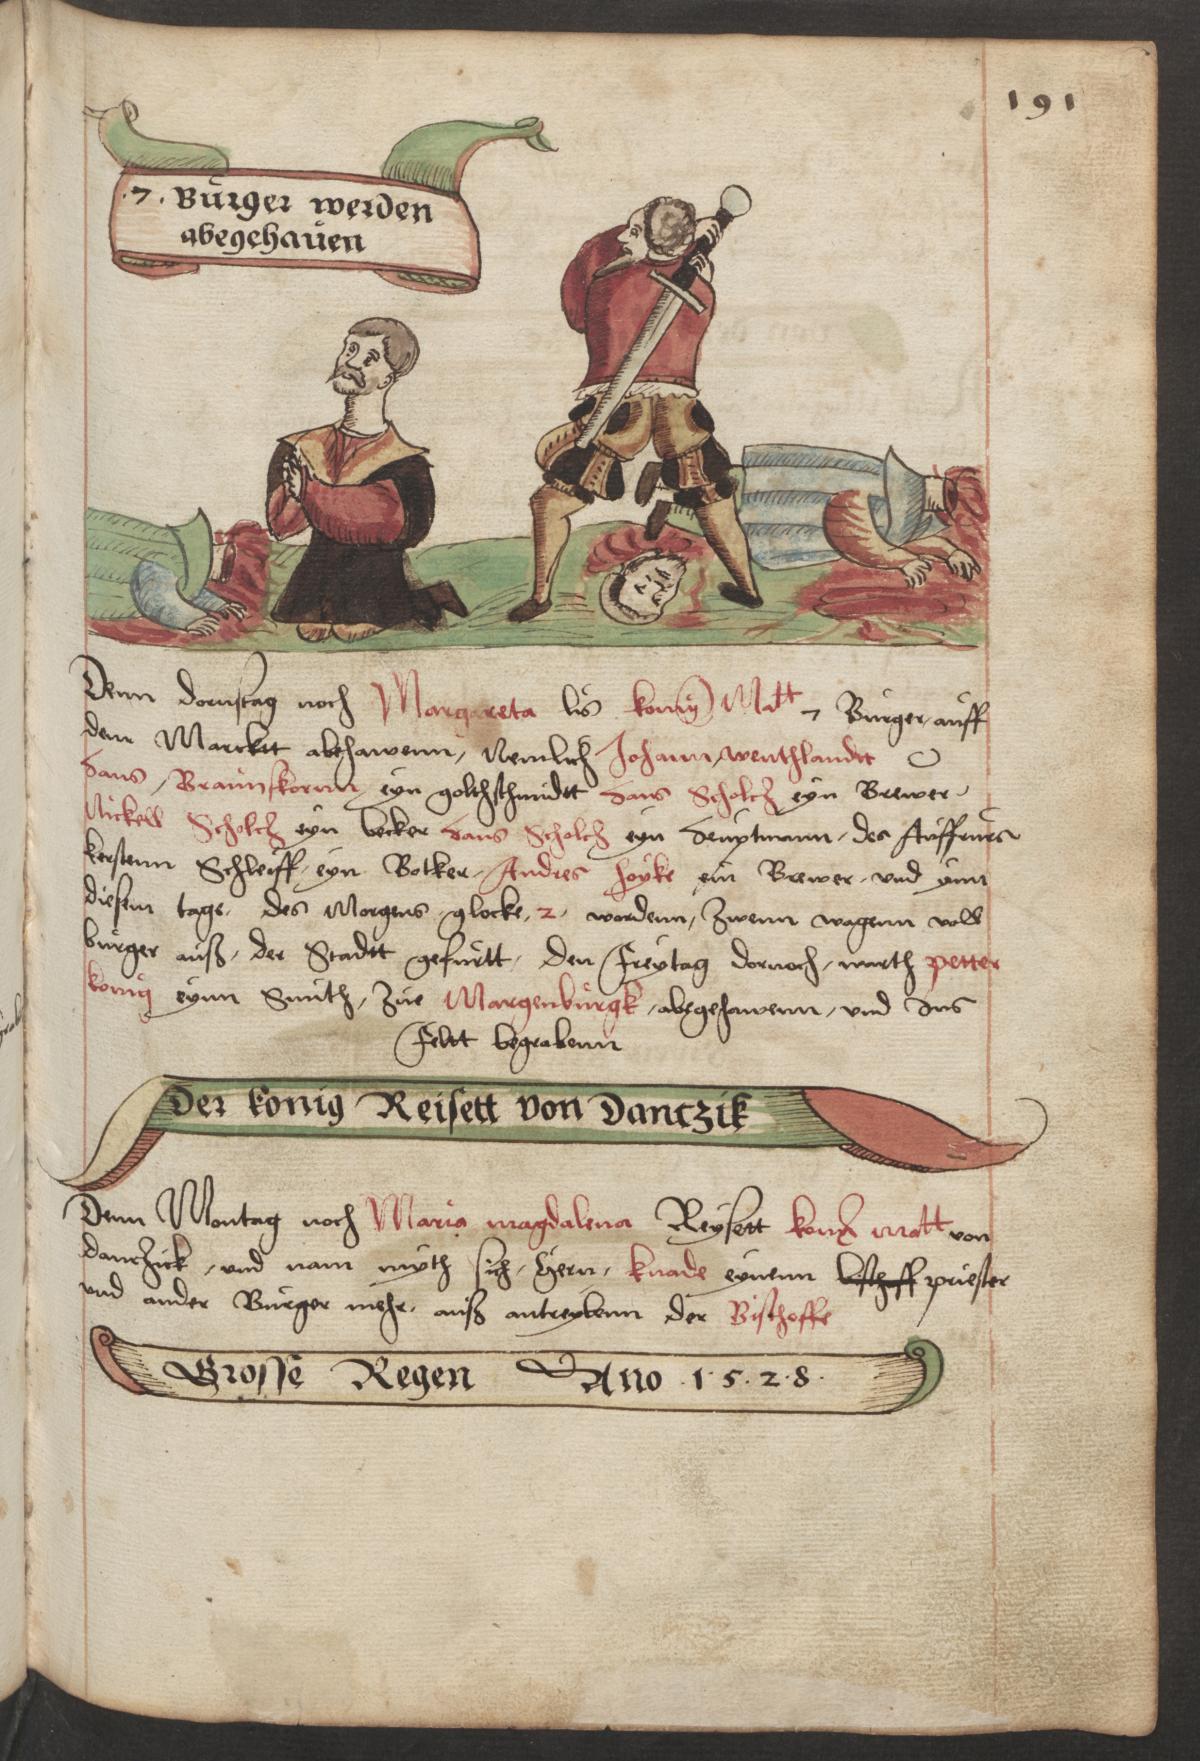 191
.7. Bürger werden
abegehaüen
Denn dornstag noch Margareta lis konig Matt 7 Bürger auff
dem Marcktt abehawenn, Nemlich Johann, wenthlandtt
Hans, Braünskornn eyn goltschmidtt Hans Scholcz eyn Brewer
Nickell Scholcz eyn becker Hans Scholcz eyn Heüptmann des Auffrürs
kerstenn Schleiff eyn Botker, Andres Hoyke ein Brewer und ynn
diesem tage, des Morgens glocke, 2, wordenn, Zwenn wagenn voll
bürger auß, der Stadtt gefürtt, den Freytag dornoch, warth petter
konig eynn Smith, Zue Margenbürgk, abegehawenn, und Ins
Feltt begrabenn
Der konig Reisett von Dantzik
Denn Montag noch Maria magdalena Reysett matt von
dantzick, und nam myth sich, Hern, knade eynenn priester
und ander Bürger mehr, auß antreybenn der Bischoffe
Grosse Regen Ano .1.5.2.8.